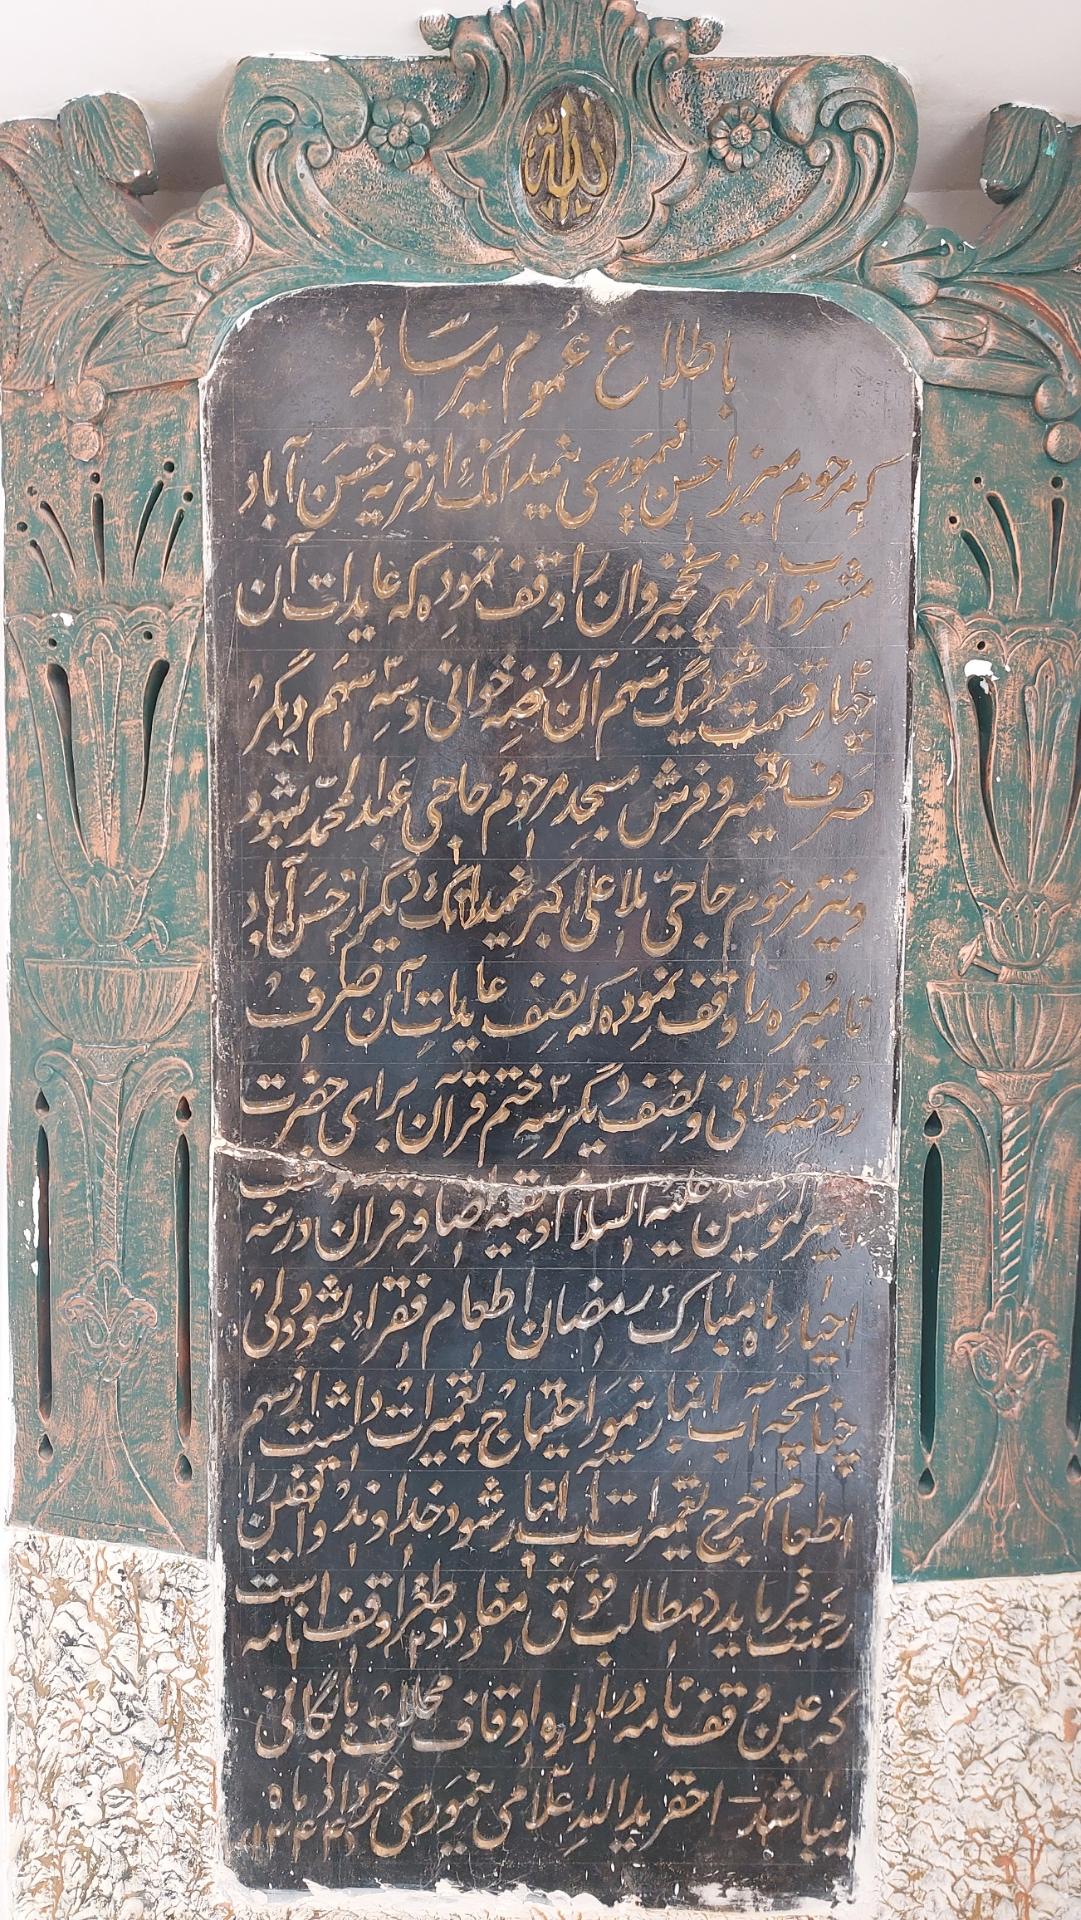 الله
باطلاع عموم میرساند
که مرحوم میرزا حسن نیموری نیمدانگ از قریه حسن آباد
مشروب از نهر نخجیروان را وقف نموده که عایدات آن
چهار قسمت شود یک سهم آن روضه خوانی و سه ۳ سهم دیگر
صرف تعمیر و فرش مسجد مرحوم حاجی عبدالمحمد بشود
و نیز مرحوم حاجی ملا علی اکبر نیمدانگ دیگر از حسن آباد
نامبرده را وقف نموده که نصف عایدات آن صرف
روضه خوانی و نصف دیگر سه ۳ ختم قرآن برای حضرت
امیرالمومنین علیه السلام و بقیه اضافه قرآن در سه شب
احیاء ماه مبارک رمضان اطعام فقراء بشود ولی
چنانچه آب انبار نیمور احتیاج به تعمیرات داشت از سهم
اطعام خرج تعمیرات آب انبار شود خداوند واقفین را
رحمت فرماید مطالب فوق مفاد دو طغرا وقفنامه است
که عین وقفنامه در اداره اوقاف محلات بایگانی
میباشد - احقر یدالله غلامی نیموری خرداد ماه